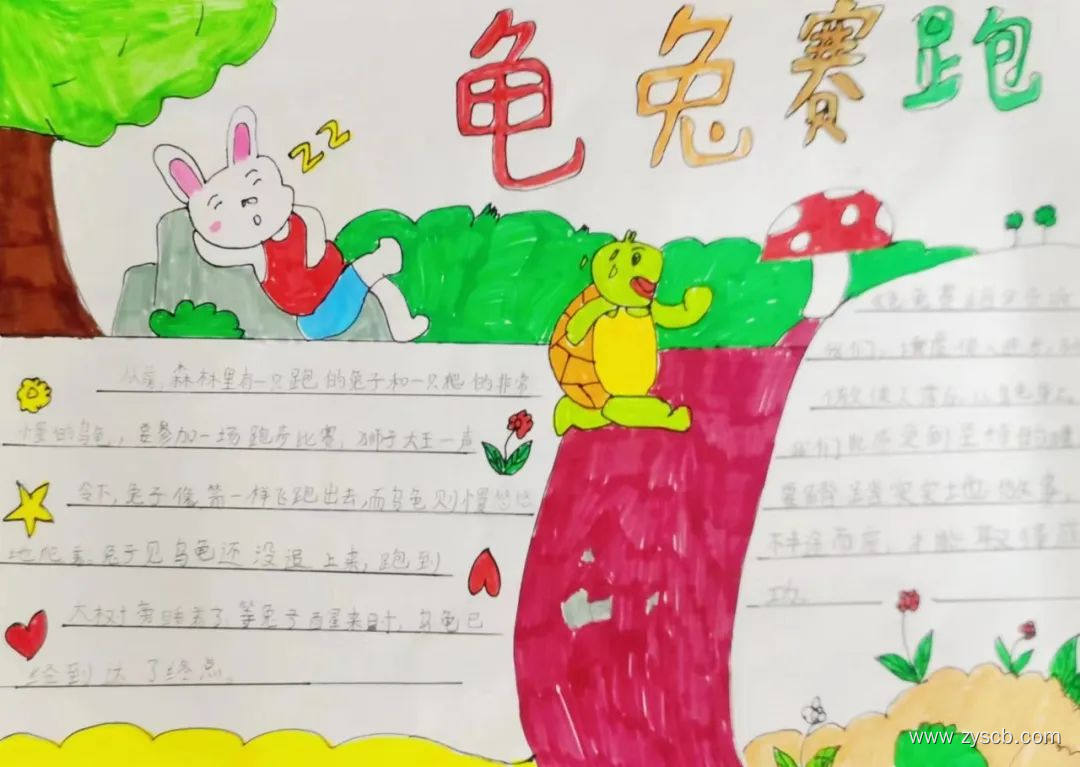 龟兔赛跑
ZZ
从前，森林里有一只跑的兔子和一只爬的非常
慢的乌龟，要参加一场跑步比赛，狮子大王一声
令下，兔子像箭一样飞跑出去，而乌龟则慢悠悠
地爬着，兔子见乌龟还没追上来，跑到
大树旁睡着了，等兔子醒来时，乌龟已
经到达了终点。
龟兔赛跑
我们，
使人落后
我们
要踏踏实实地做事，
半途而废，才能取得成
功。
www.zyscb.com